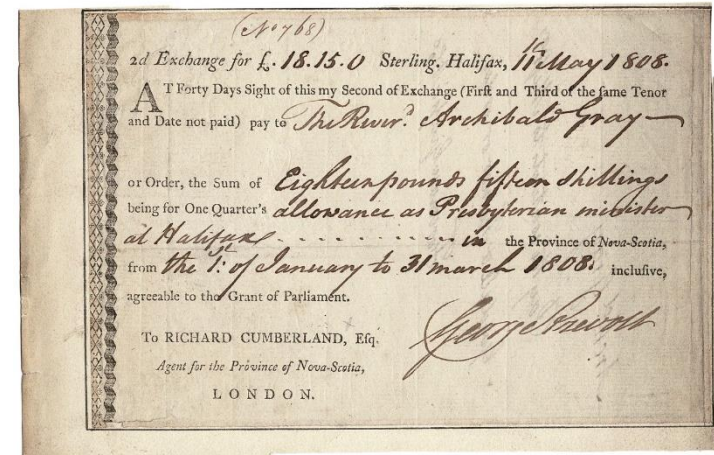 (No 768)
2d Exchange for £. 18.15.0 Sterling. Halifax, 11th May 1808.
AT Forty Days Sight of this my Second of Exchange (Firſt and Third of the ſame Tenor
and Date not paid) pay to The Rever.d Archibald Gray
or Order, the Sum of Eighteen pounds fifteen shillings
being for One Quarter's allowance as Presbyterian minister
at Halifax - - - - - - - - - - - in the Province of Nova-Scotia,
from the 1st of January to 31 march 1808. incluſive,
agreeable to the Grant of Parliament.
George Prevost
To RICHARD CUMBERLAND, Eſq.
Agent for the Province of Nova-Scotia,
LONDON.